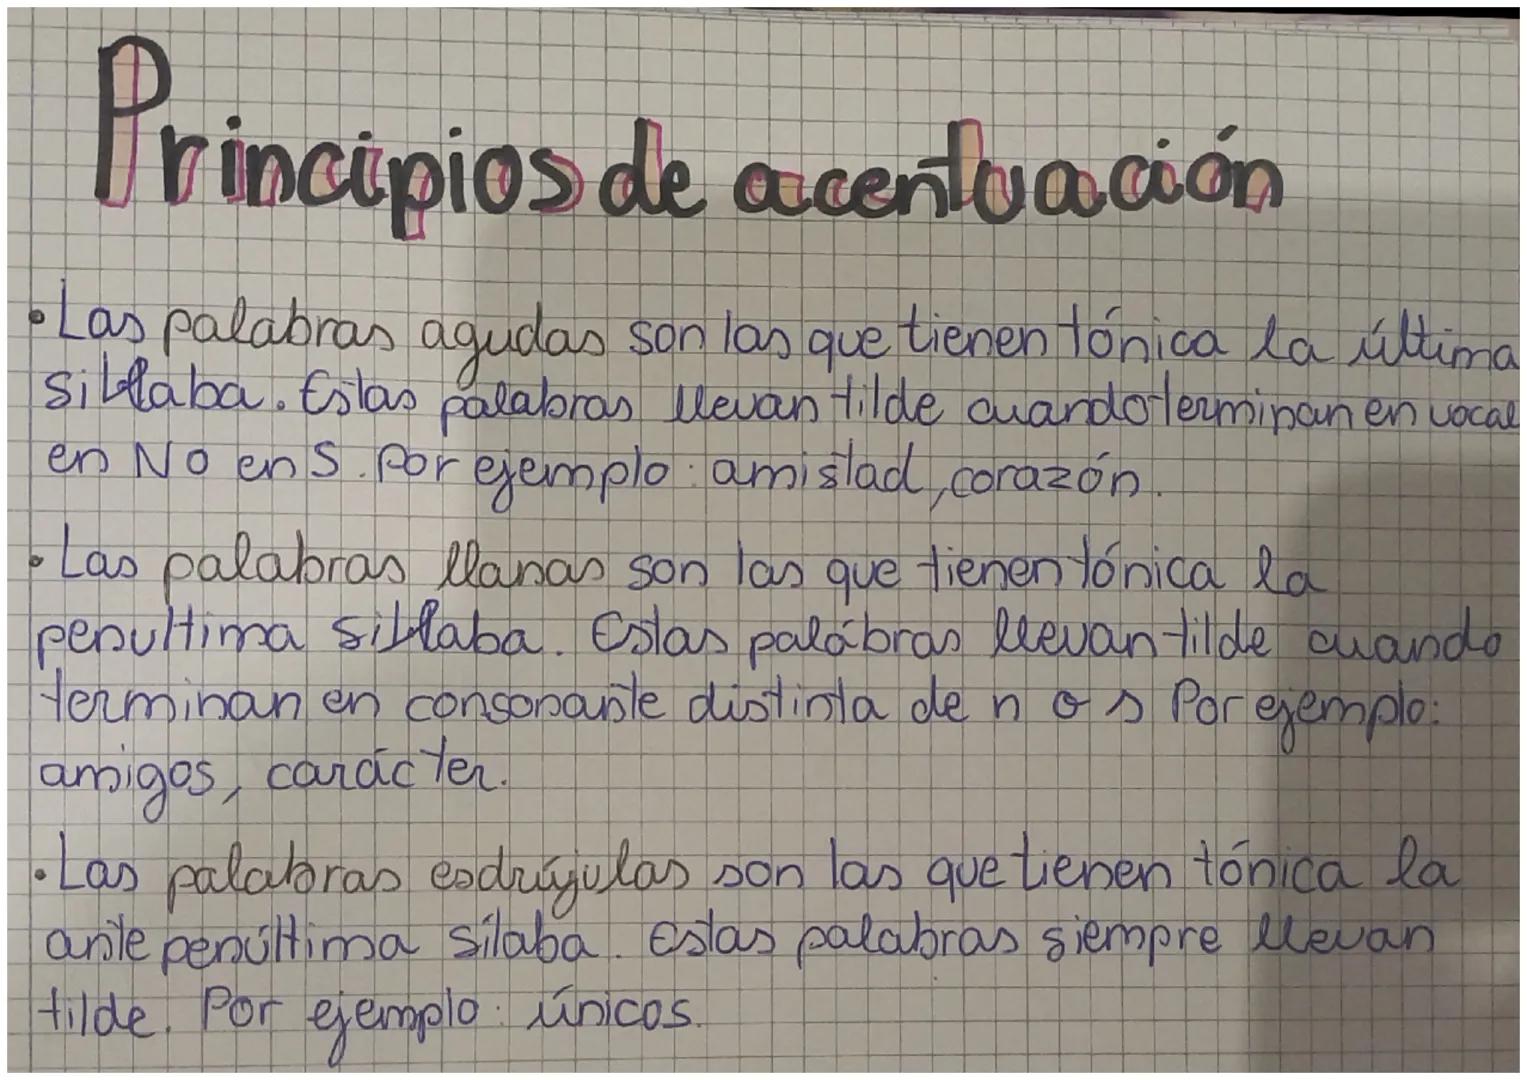 Principios de acentuación
• Las palabras agudas son las que tienen tónica la última
sillaba. Estas palabras llevan tilde cuando terminan en vocal
en N O en S. Por ejemplo: amistad, corazón.
• Las palabras llanas son las que tienen tónica la
penultima sillaba. Estas palabras llevan tilde cuando
terminan en consonante distinta de n o s Por ejemplo:
amigos, carácter.
• Las palabras esdrújulas son las que tienen tónica la
ante penúltima sílaba. Estas palabras siempre llevan
tilde. Por ejemplo: únicos.